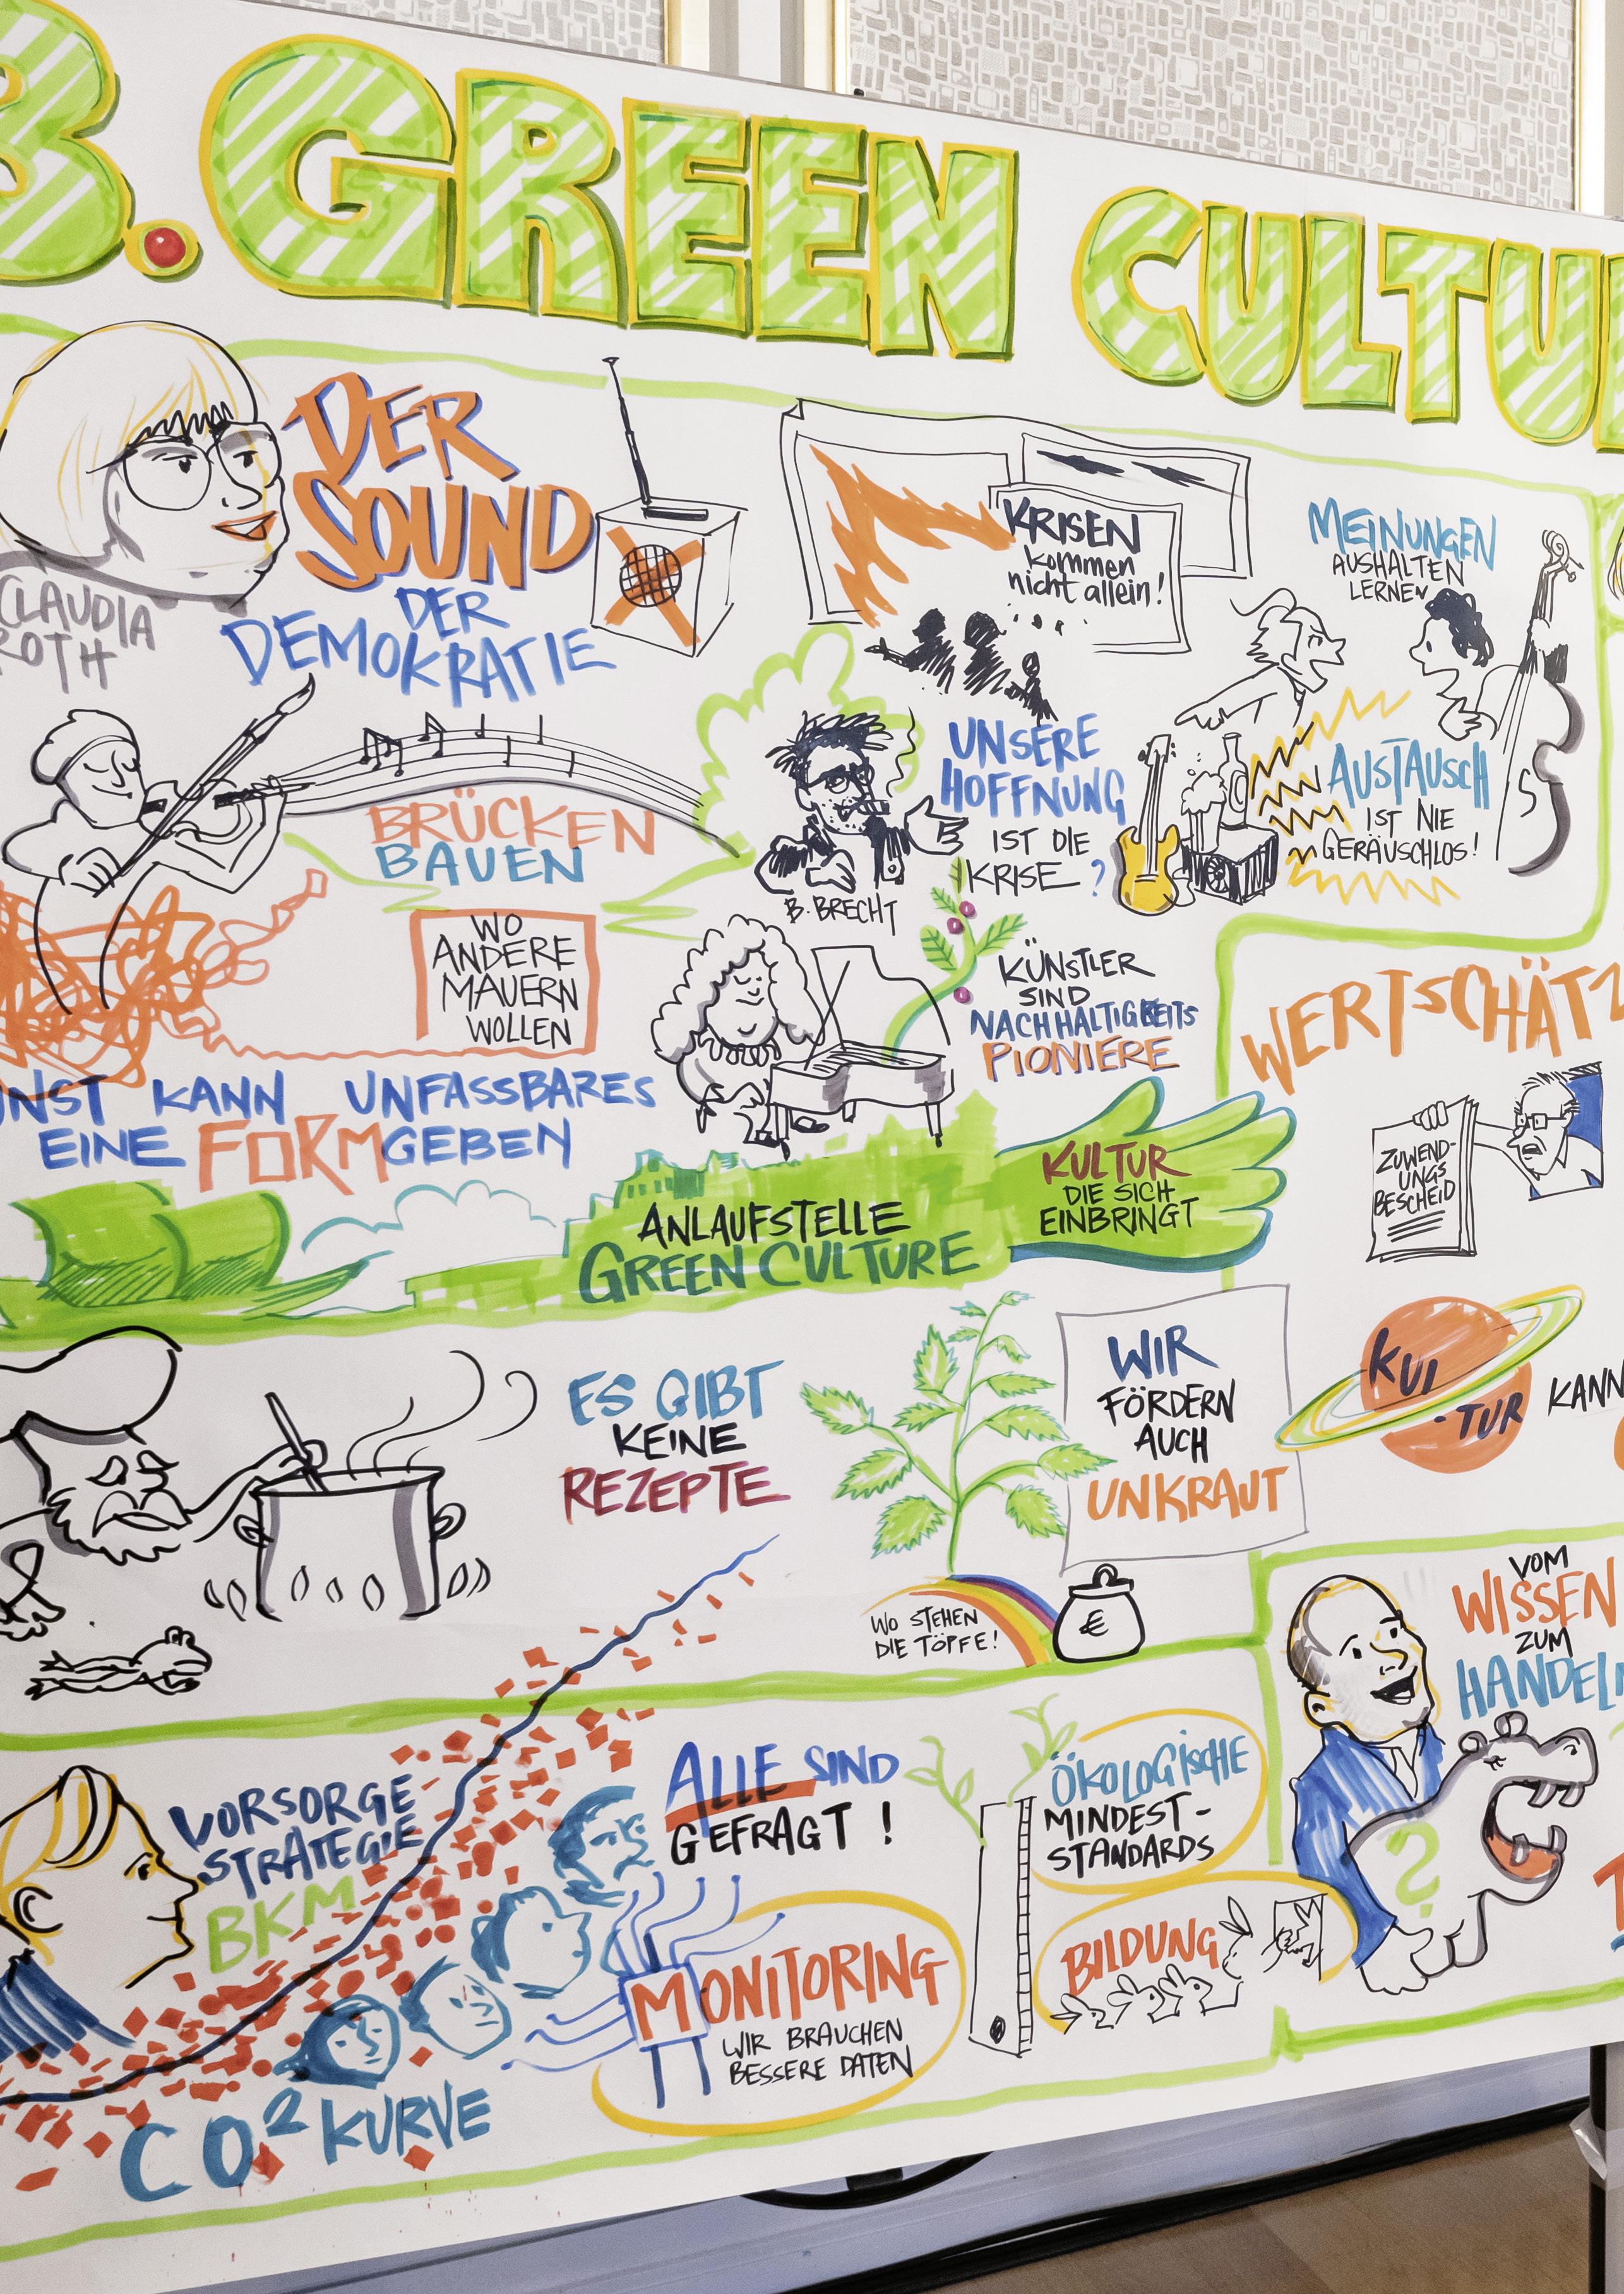 3. GREEN CULTU
CLAUDIA
ROTH
DER
SOUND
DER
DEMOKRATIE
KRISEN
kommen
nicht allein!
MEINUNGEN
AUSHALTEN
LERNEN
BRÜCKEN
BAUEN
WO
ANDERE
MAUERN
WOLLEN
B. BRECHT
UNSERE
HOFFNUNG
IST DIE
KRISE?
AUSTAUSCH
IST NIE
GERÄUSCHLOS!
KÜNSTLER
SIND
NACHHALTIGKEITS
PIONIERE
UNST KANN UNFASSBARES
EINE FORM GEBEN
WERTSCHÄTZ
ZUWEND-
UNGS
BESCHEID
ANLAUFSTELLE
GREEN CULTURE
KULTUR
DIE SICH
EINBRINGT
ES GIBT
KEINE
REZEPTE
WIR
FÖRDERN
AUCH
UNKRAUT
KUL
-TUR KANN
WO STEHEN
DIE TÖPFE!
€
VOM
WISSEN
ZUM
HANDELN
VORSORGE
STRATEGIE
BKM
ALLE SIND
GEFRAGT!
ÖKOLOGISCHE
MINDEST-
STANDARDS
?
MONITORING
WIR BRAUCHEN
BESSERE DATEN
BILDUNG
CO2 KURVE